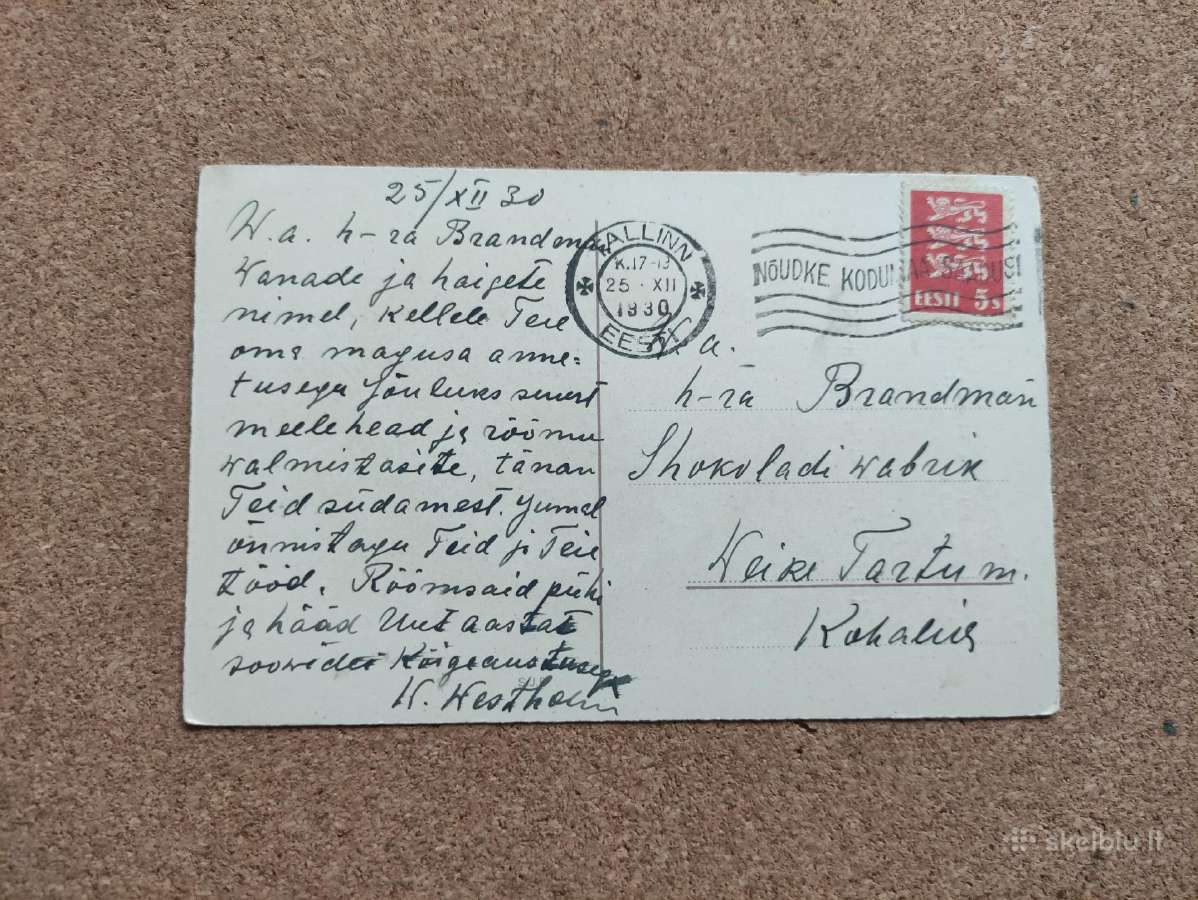 25/XII 30
W.a. h-ra Brandman
Wanade ja haigete
nimel, kellele Teie
oma magusa anne=
tusega Jõuluks suurt
meelehead ja rõõmu
walmistasite, tänan
Teid südamest. Jumal
õnnistagu Teid ja Teie
tööd. Rõõmsaid pühi
ja hääd Uut aastat
soowides Kõigeaustusega
W. Westholm
TALLINN
K.17-19
25 · XII
1930
EESTI
NÕUDKE KODUMAA SAADUSI
EESTI 5s
W. a.
h-ra Brandman
Shokoladi wabrik
Weike Tartu m.
Kohalik
skelbiu.lt